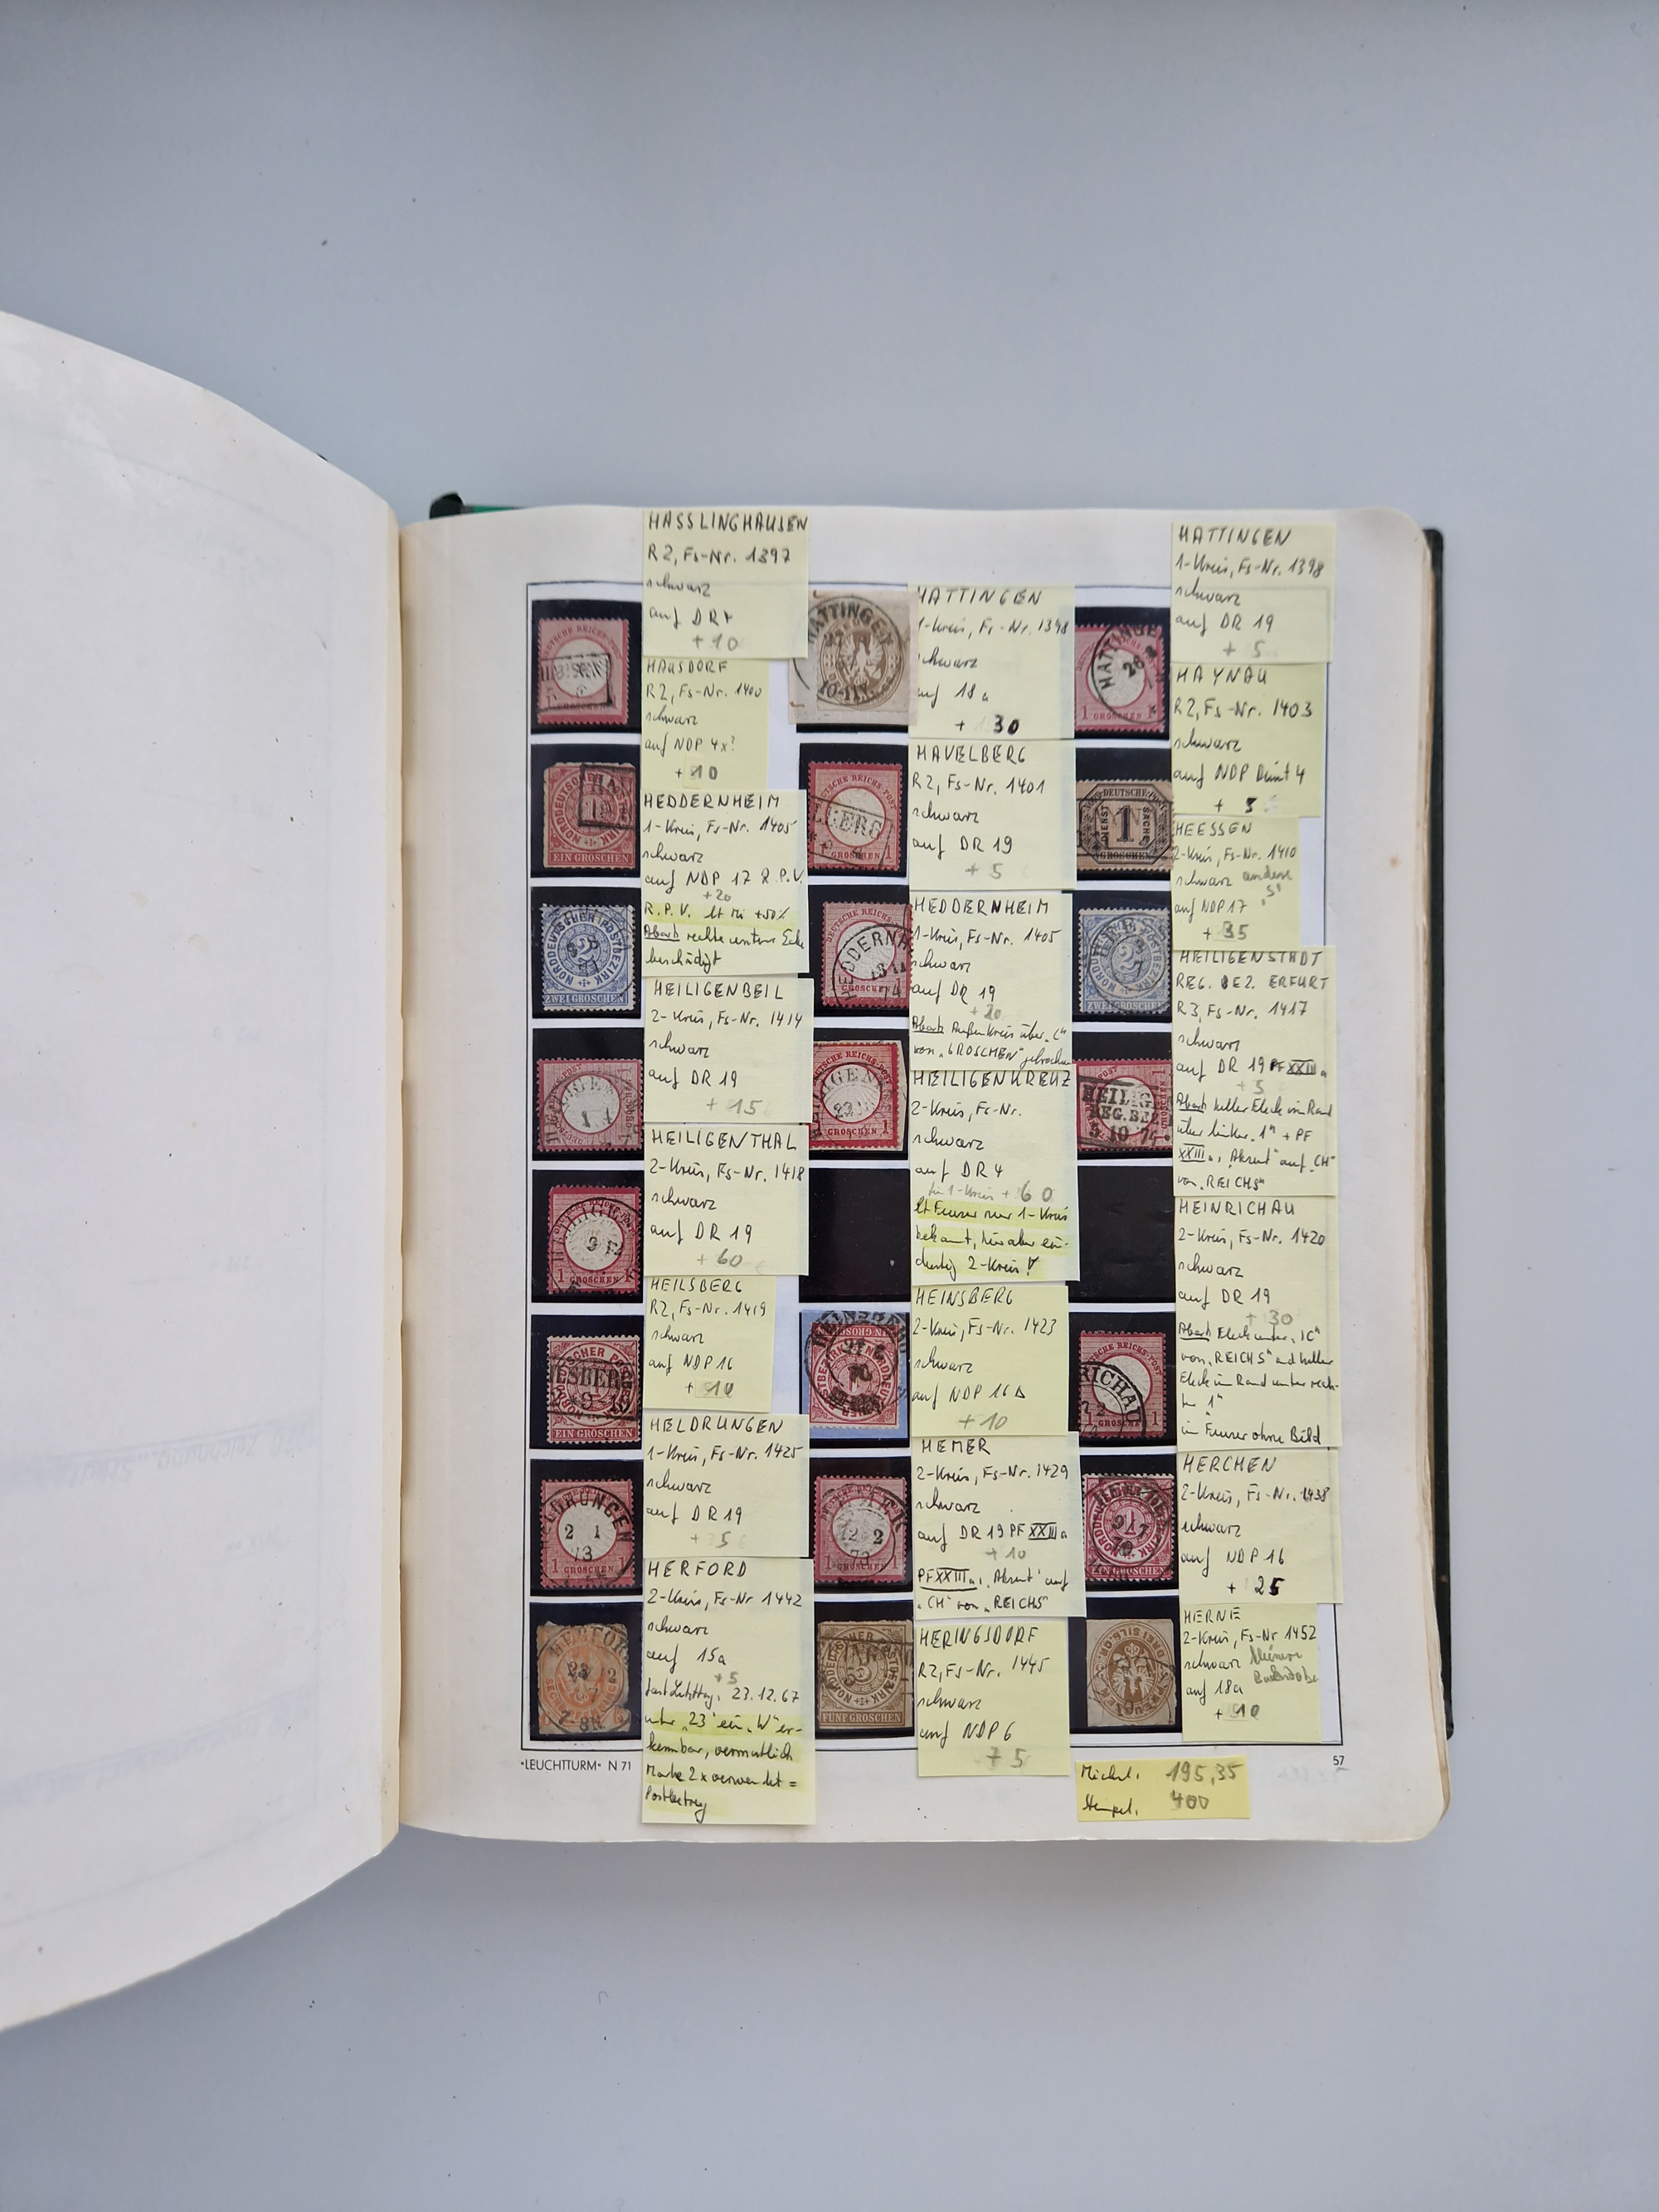 HASSLINGHAUSEN
R2, Fs-Nr. 1397
schwarz
auf DR 4
+ 10
HATTINGEN
1-Kreis, Fs-Nr. 1398
schwarz
auf 18a
+ 30
HATTINGEN
1-Kreis, Fs-Nr. 1398
schwarz
auf DR 19
+ 5
HAUSDORF
R2, Fs-Nr. 1400
schwarz
auf NDP 4x?
+ 10
HAVELBERG
R2, Fs-Nr. 1401
schwarz
auf DR 19
+ 5
HAYNAU
R2, Fs-Nr. 1403
schwarz
auf NDP Dienst 4
+ 5
HEDDERNHEIM
1-Kreis, Fs-Nr. 1405
schwarz
auf NDP 17 R.P.V.
+20
R.P.V. lt Mi +50%
Abart rechte untere Ecke
beschädigt
HEDDERNHEIM
1-Kreis, Fs-Nr. 1405
schwarz
auf DR 19
+ 20
Abart Außenkreis über „C"
von „GROSCHEN" gebrochen
HEESSEN
2-Kreis, Fs-Nr. 1410
schwarz andere
„S"
auf NDP 17
+ 35
HEILIGENBEIL
2-Kreis, Fs-Nr. 1414
schwarz
auf DR 19
+ 15
HEILIGENKREUZ
2-Kreis, Fs-Nr.
schwarz
auf DR 4
für 1-Kreis + 60
lt Feuser nur 1-Kreis
bekannt, hier aber ein-
deutig 2-Kreis!
HEILIGENSTADT
REG. BEZ. ERFURT
R3, Fs-Nr. 1417
schwarz
auf DR 19 PF XXIII a
+ 5
Abart heller Fleck im Rand
über linker „1" + PF
XXIII a, „Akzent" auf „CH"
von „REICHS"
HEILIGENTHAL
2-Kreis, Fs-Nr. 1418
schwarz
auf DR 19
+ 60
HEILSBERG
R2, Fs-Nr. 1419
schwarz
auf NDP 16
+ 10
HEINSBERG
2-Kreis, Fs-Nr. 1423
schwarz
auf NDP 16 Δ
+ 10
HEINRICHAU
2-Kreis, Fs-Nr. 1420
schwarz
auf DR 19
+ 30
Abart Fleck unter „IC"
von „REICHS" und heller
Fleck im Rand unter rech-
ter „1"
in Feuser ohne Bild
HELDRUNGEN
1-Kreis, Fs-Nr. 1425
schwarz
auf DR 19
+ 5
HEMER
2-Kreis, Fs-Nr. 1429
schwarz
auf DR 19 PF XXIII a
+ 10
PF XXIII a, „Akzent" auf
„CH" von „REICHS"
HERCHEN
2-Kreis, Fs-Nr. 1438
schwarz
auf NDP 16
+ 25
HERFORD
2-Kreis, Fs-Nr 1442
schwarz
auf 15a
+ 5
fast Letzttag, 23.12.67
unter „23" ein „W" er-
kennbar, vermutlich
Marke 2x verwendet =
Postbetrug
HERINGSDORF
R2, Fs-Nr. 1445
schwarz
auf NDP 6
+ 5
HERNE
2-Kreis, Fs-Nr 1452
schwarz kleinere
Buchstabe
auf 18a
+ 10
Michel: 195,35
Stempel: 400
"LEUCHTTURM" N 71
57
HATTINGEN
EIN GROSCHEN
NORDDEUTSCHE POST
1
ZWEI GROSCHEN
HEILIGE
REG. BE
5 10 74
EIN GROSCHEN
RICHAU
LDRUNGEN
2 1
73
1 GROSCHEN 1
FÜNF GROSCHEN